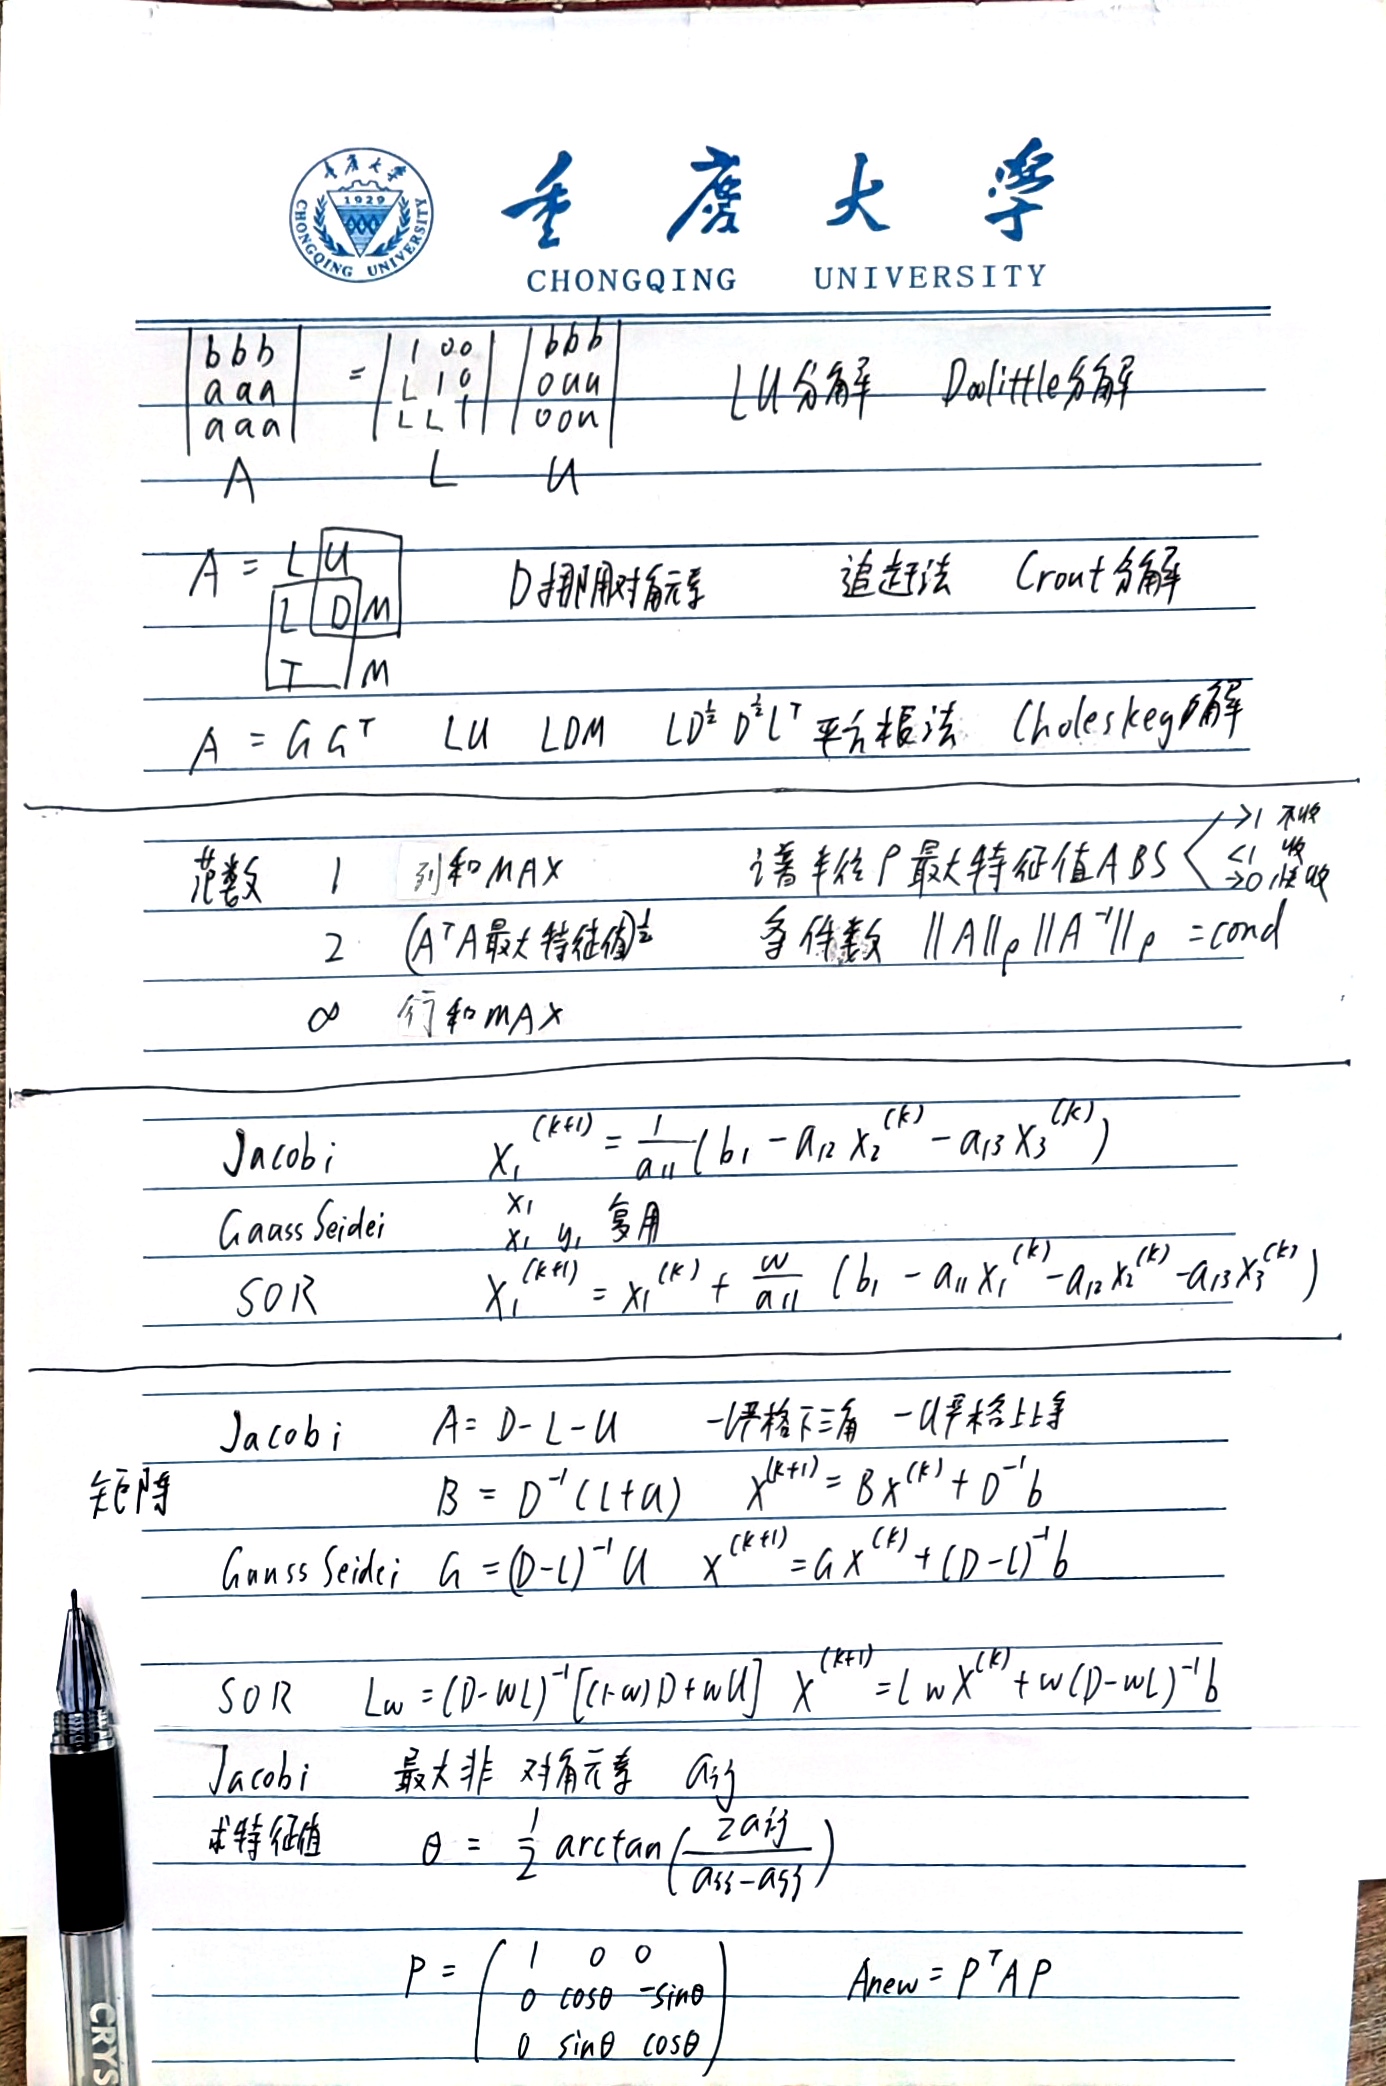 重庆大学
CHONGQING UNIVERSITY
重庆大学 1929 CHONGQING UNIVERSITY
|b b b| = |1 0 0| |b b b| LU分解 Doolittle分解
|a a a| |L 1 0| |0 u u|
|a a a| |L L 1| |0 0 u|
A L U
A = L U
L D M D挪用对角元素 追赶法 Crout分解
T M
A = GGᵀ LU LDM LD^½ D^½Lᵀ 平方根法 Choleskey分解
范数 1 列和MAX 谱半径ρ最大特征值ABS >1 不收
<1 收
→0 快收
2 (AᵀA最大特征值)^½ 条件数 ||A||ρ ||A⁻¹||ρ = cond
∞ 行和MAX
Jacobi x₁^(k+1) = 1/a₁₁ (b₁ - a₁₂x₂^(k) - a₁₃x₃^(k))
x₁
Gauss Seidei x₁ y₁ 复用
SOR x₁^(k+1) = x₁^(k) + w/a₁₁ (b₁ - a₁₁x₁^(k) - a₁₂x₂^(k) - a₁₃x₃^(k))
Jacobi A = D - L - U -L严格下三角 -U严格上
矩阵 B = D⁻¹(L+U) x^(k+1) = Bx^(k) + D⁻¹b
Gauss Seidei G = (D-L)⁻¹U x^(k+1) = Gx^(k) + (D-L)⁻¹b
SOR Lw = (D-wL)⁻¹[(1-w)D+wU] x^(k+1) = Lwx^(k) + w(D-wL)⁻¹b
Jacobi 最大非对角元素 aij
求特征值 θ = 1/2 arctan(2aij/(aii-ajj))
P = (1 0 0 Anew = PᵀAP
0 cosθ -sinθ
0 sinθ cosθ)
CRYS